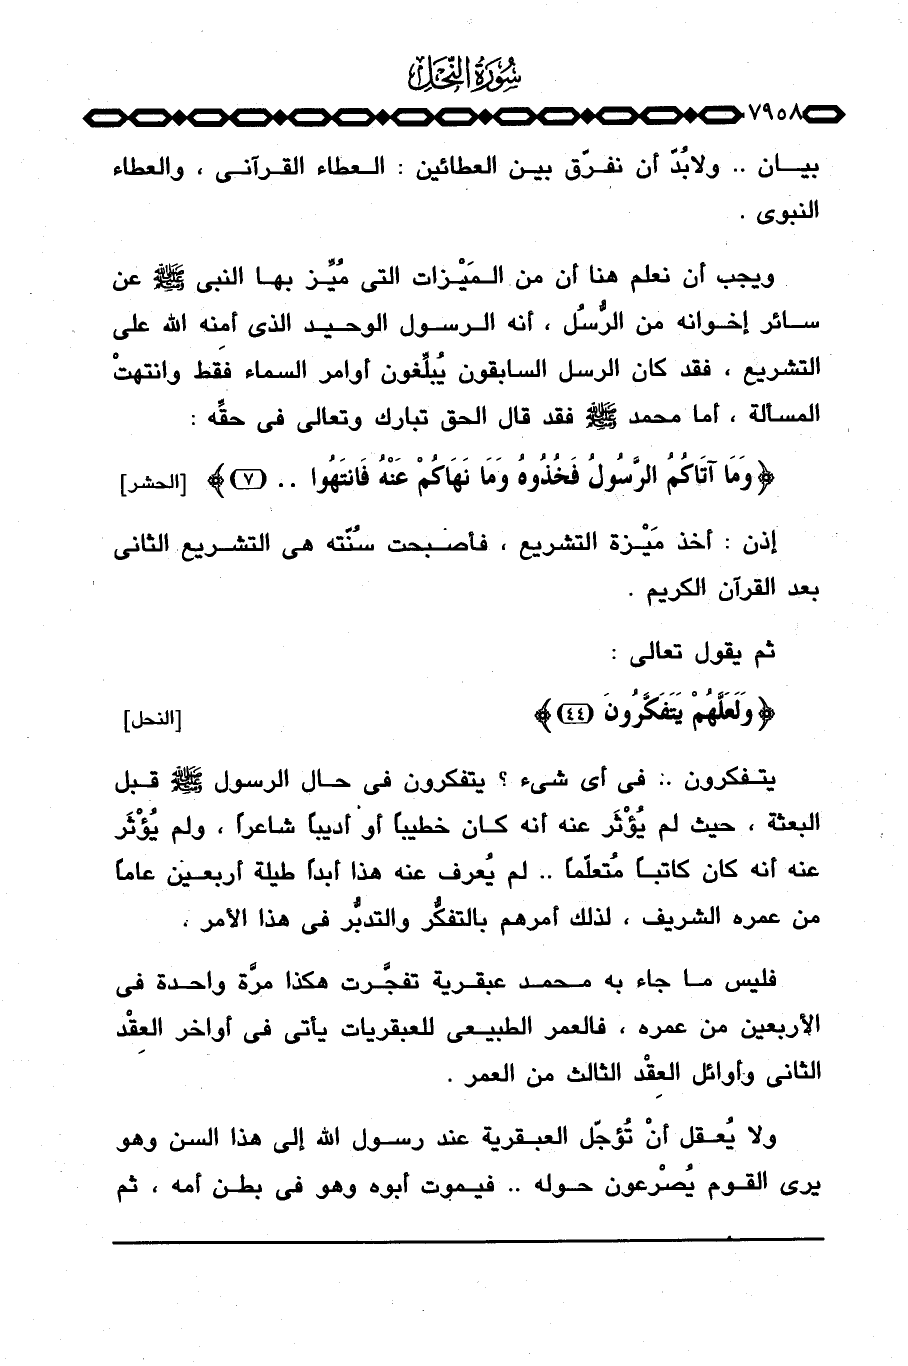 سورة النحل
٧٩٥٨
بيان .. ولابُدّ أن نفرّق بين العطائين : العطاء القرآنى ، والعطاء
النبوى .
ويجب أن نعلم هنا أن من المَيْزات التى مُيِّز بها النبى ﷺ عن
سائر إخوانه من الرُّسُل ، أنه الرسول الوحيد الذى أمِنه الله على
التشريع ، فقد كان الرسل السابقون يُبلِّغون أوامر السماء فقط وانتهتْ
المسألة ، أما محمد ﷺ فقد قال الحق تبارك وتعالى فى حقِّه :
﴿ وَمَا آتَاكُمُ الرَّسُولُ فَخُذُوهُ وَمَا نَهَاكُمْ عَنْهُ فَانتَهُوا .. (٧) ﴾ [الحشر]
إذن : أخذ مَيْزة التشريع ، فأصبحت سُنّته هى التشريع الثانى
بعد القرآن الكريم .
ثم يقول تعالى :
﴿ وَلَعَلَّهُمْ يَتَفَكَّرُونَ (٤٤) ﴾ [النحل]
يتفكرون .. فى أى شىء ؟ يتفكرون فى حال الرسول ﷺ قبل
البعثة ، حيث لم يُؤْثَر عنه أنه كان خطيباً أو أديباً شاعراً ، ولم يُؤْثَر
عنه أنه كان كاتباً مُتعلّماً .. لم يُعرف عنه هذا أبداً طيلة أربعين عاماً
من عمره الشريف ، لذلك أمرهم بالتفكُّر والتدبُّر فى هذا الأمر .
فليس ما جاء به محمد عبقرية تفجَّرت هكذا مرَّة واحدة فى
الأربعين من عمره ، فالعمر الطبيعى للعبقريات يأتى فى أواخر العِقْد
الثانى وأوائل العِقْد الثالث من العمر .
ولا يُعقل أنْ تُؤجّل العبقرية عند رسول الله إلى هذا السن وهو
يرى القوم يُصْرعون حوله .. فيموت أبوه وهو فى بطن أمه ، ثم